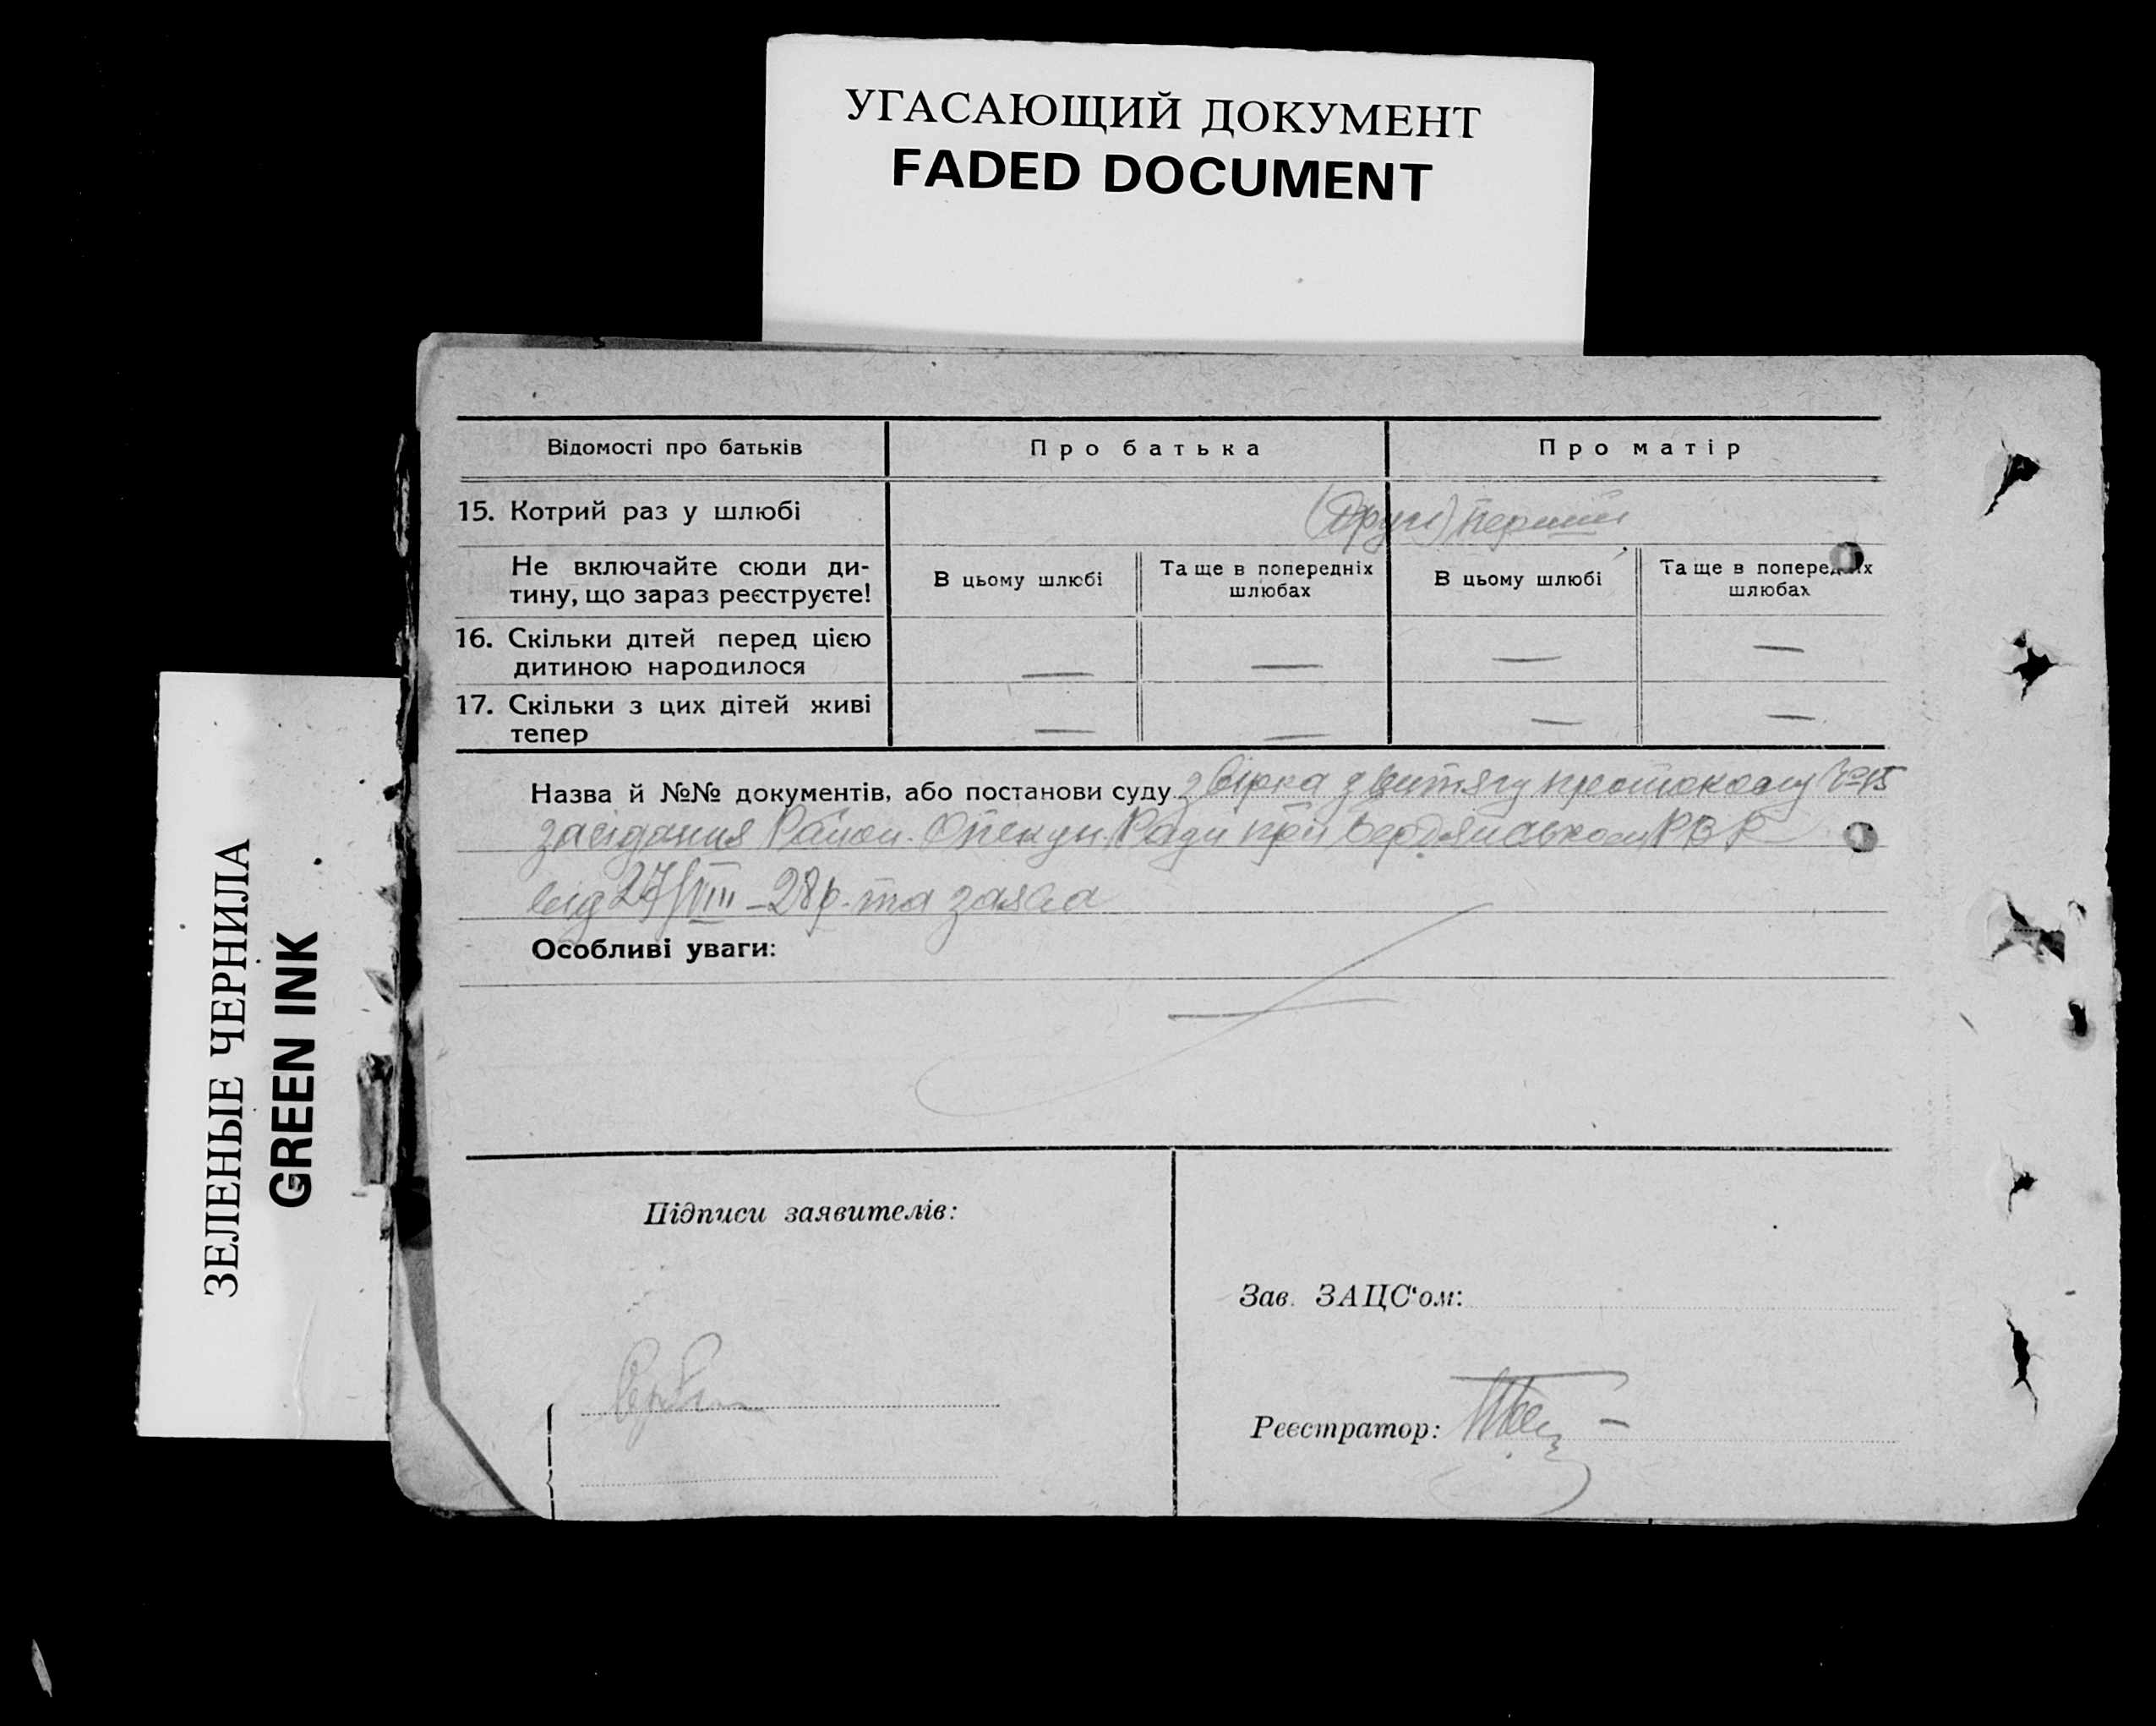 УГАСАЮЩИЙ ДОКУМЕНТ
FADED DOCUMENT
ЗЕЛЕНЫЕ ЧЕРНИЛА
GREEN INK
Відомості про батьків
Про батька
Про матір
15. Котрий раз у шлюбі
(други) перший
Не включайте сюди ди-
тину, що зараз реєструєте!
В цьому шлюбі
Та ще в попередніх
шлюбах
В цьому шлюбі
Та ще в попередніх
шлюбах
16. Скільки дітей перед цією
дитиною народилося
— — — —
17. Скільки з цих дітей живі
тепер
— — — —
Назва й №№ документів, або постанови суду звірка з витягу протоколу №15
засідания Район. Опекун. Ради при Бердянському РВК
від 27/VIII – 28 р. та заява
Особливі уваги:
Підписи заявителів:
Зав. ЗАЦС‘ом:
Реєстратор: